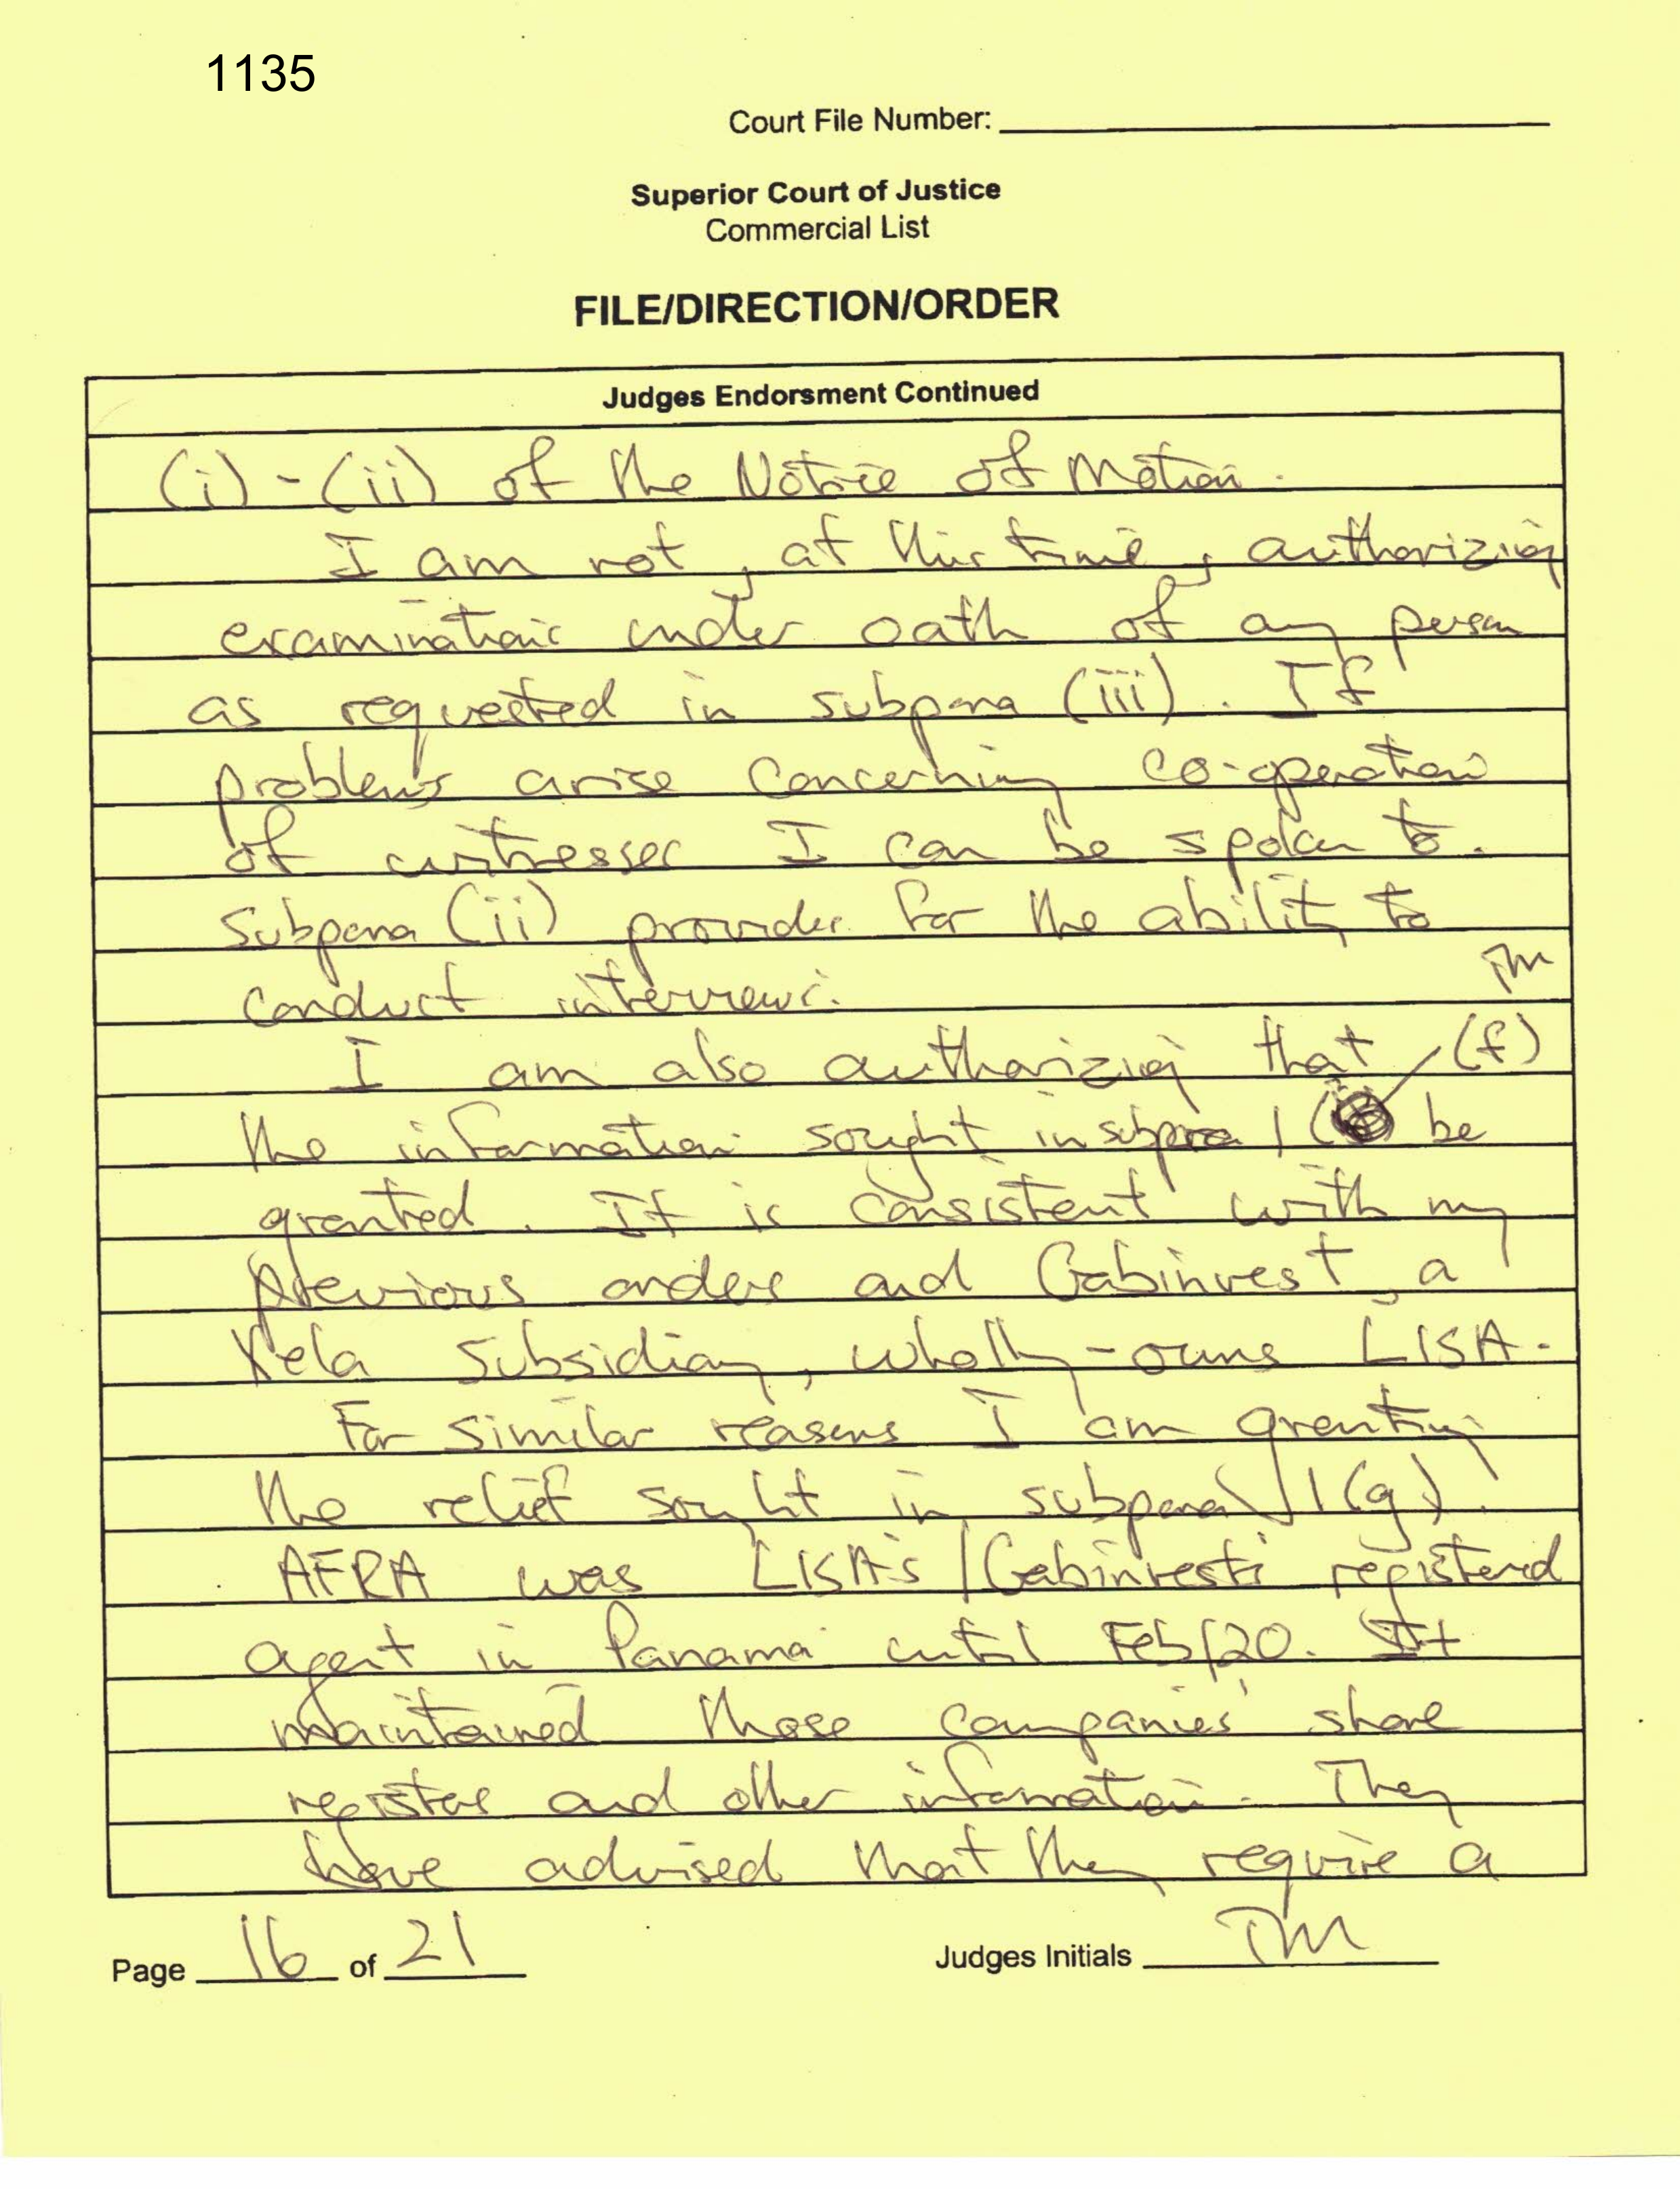 1135
Court File Number:
Superior Court of Justice
Commercial List
FILE/DIRECTION/ORDER
Judges Endorsment Continued
(i) - (ii) of the Notice of Motion.
I am not, at this time, authorizing
examinations under oath of any person
as requested in subpara (iii). If
problems arise concerning co-operation
of witnesses I can be spoken to.
Subpara (ii) provides for the ability to
conduct interviews.
TM
I am also authorizing that (f)
the information sought in subpara 1 ( be
granted. It is consistent with my
previous orders and Gabinvest, a
Xela subsidiary, wholly-owns LISA.
For similar reasons I am granting
the relief sought in subpara 1(g).
AFRA was LISA's/Gabinvest's registered
agent in Panama until Feb/20. It
maintained those companies' share
registers and other information. They
have advised that they require a
Page 16 of 21
Judges Initials TM